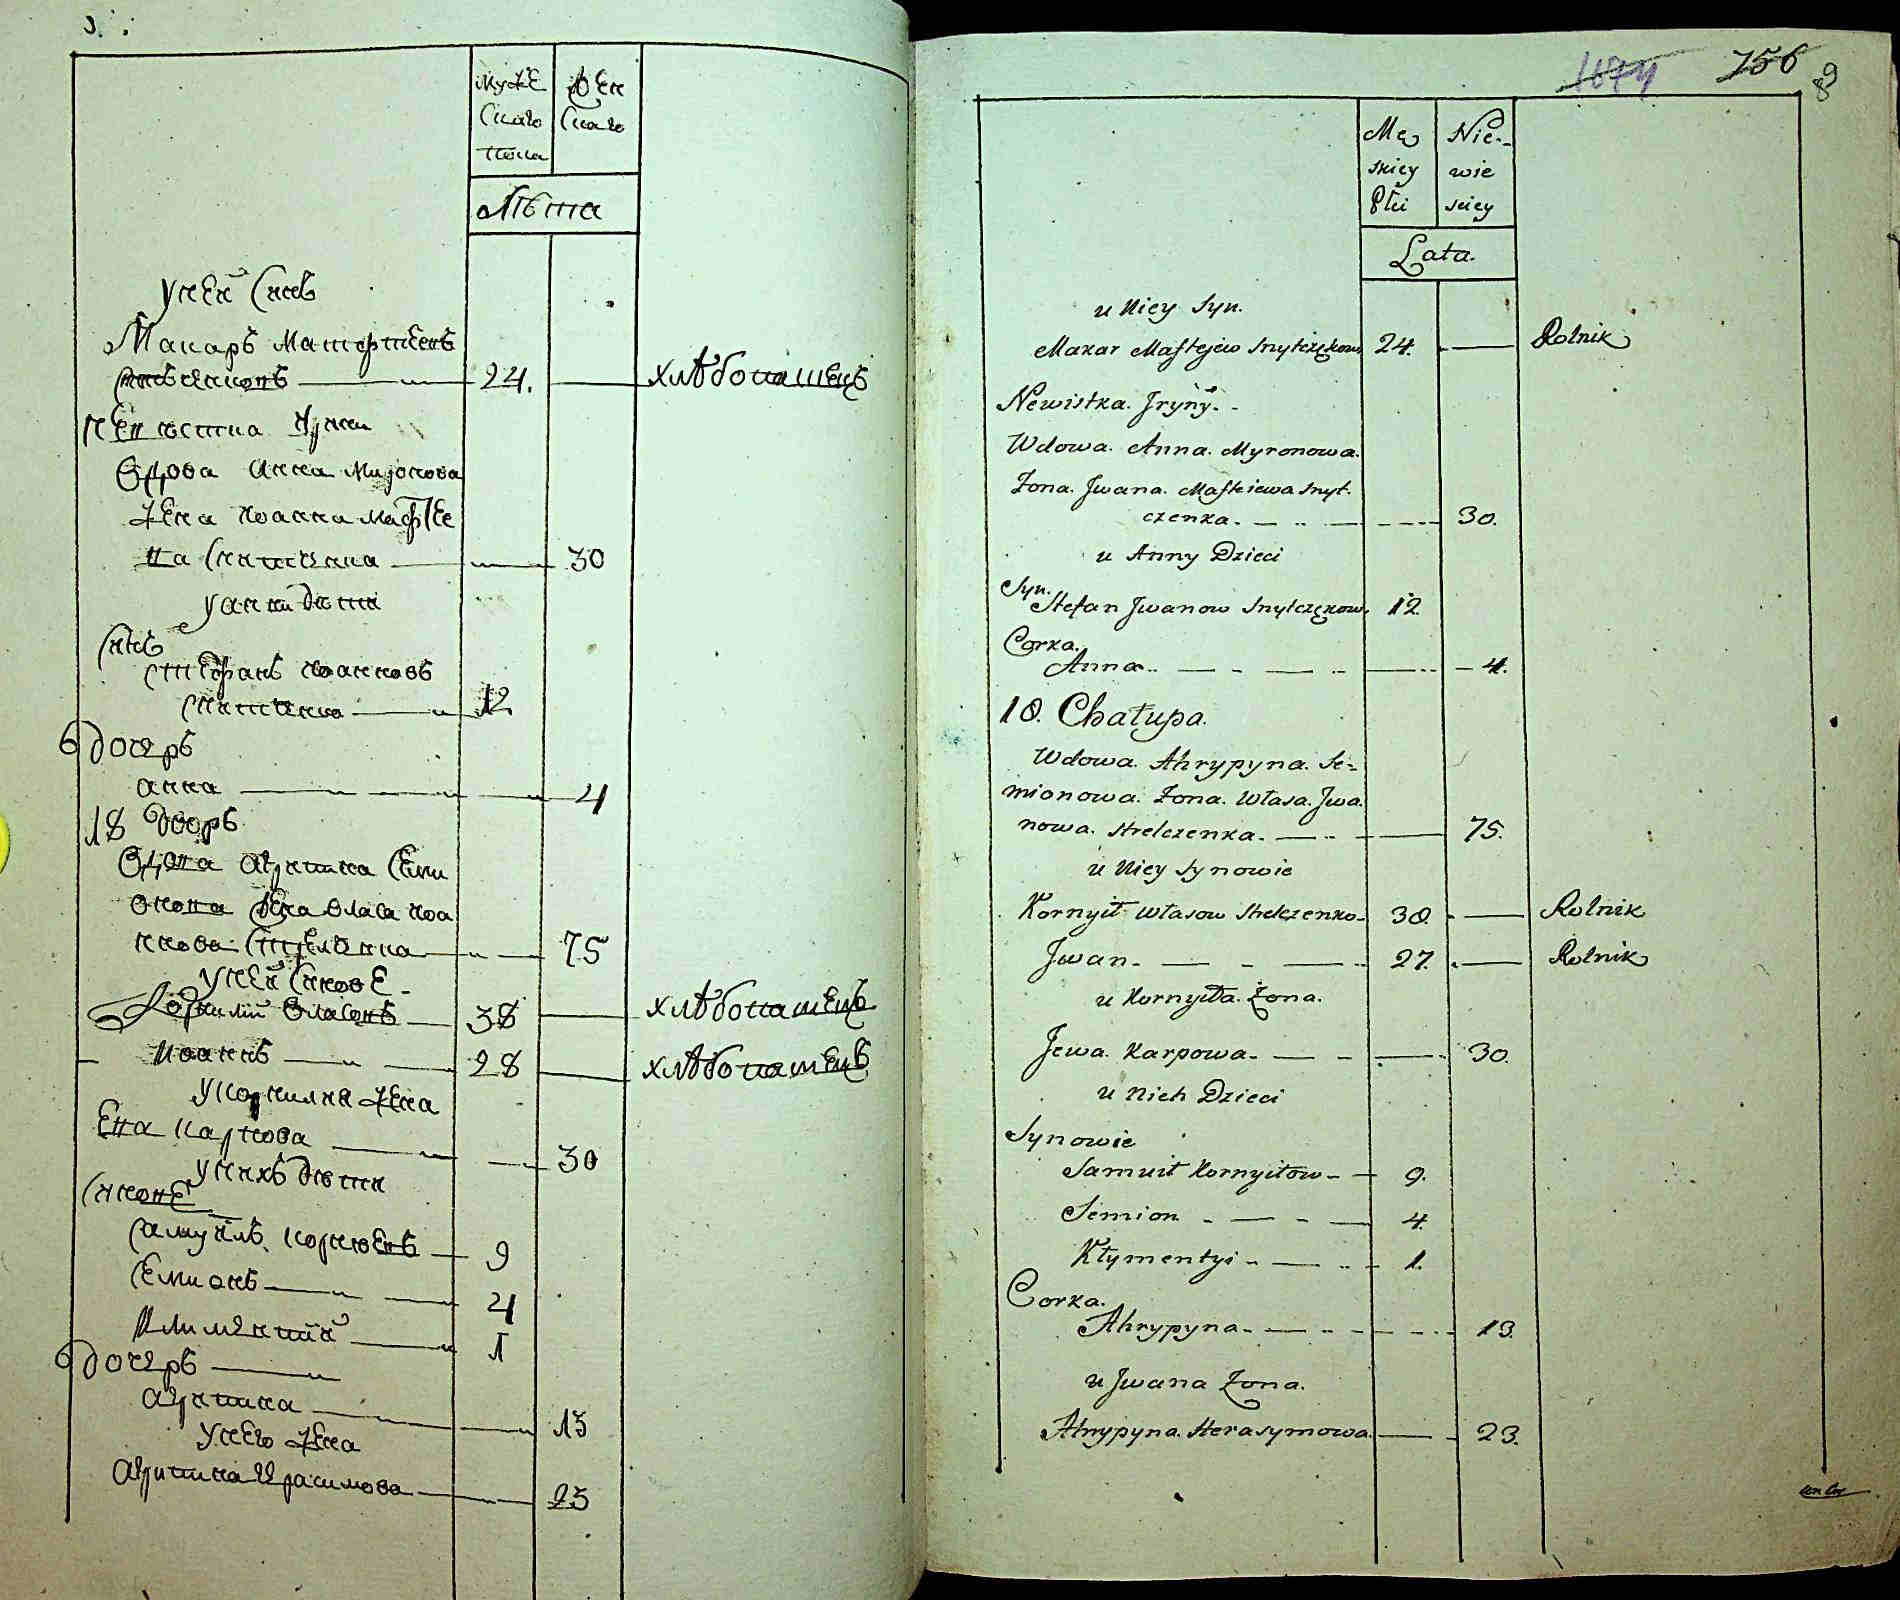 Муже
скаго
пола
Жен
скаго
Лѣта
У ней сынъ
Макаръ
24.
хлѣбопашецъ
Вдова Анна Миронова
жена Иоанна
30
У Анны дѣти
Сынъ
Стефанъ Иоанновъ
12
Дочерь
Анна
4
18 дворъ
Вдова Агрипина Семи
онова жена Власа Иоа
ннова
75
У ней сынове
Корнилий Власовъ 38 хлѣбопашецъ
Иоаннъ 28 хлѣбопашецъ
У Корнилия жена
Ева Карпова 30
У нихъ дѣти
Сынове
Самуилъ 9
Семионъ 4
Климентий 1
Дочерь
Агрипина 13
У него жена
Агрипина Герасимова 23
1874 756 89
Mę
skiey
Płci
Nie-
wie
sciey
Lata.
u Niey Syn.
Makar 24. Rolnik
Newistka. Jryny.
Wdowa. Anna. Myronowa.
Żona. Jwana.
czenka. 30.
u Anny Dzieci
Syn.
Stefan Jwanow 12
Corka.
Anna 4.
18. Chałupa.
Wdowa. Ahrypyna. Se-
mionowa. Żona. Własa. Jwa.
nowa. Strelczenka. 75.
u Niey Synowie
Kornyił Własow Strelczenko 38. Rolnik
Jwan 27. Rolnik
u Kornyiła. Żona.
Jewa. Karpowa 30.
u Nich Dzieci
Synowie
Samuił Kornyiłow 9.
Semion 4.
Kłymentyi 1.
Corka.
Ahrypyna 13.
u Jwana Żona.
Ahrypyna. Herasymowa. 23.